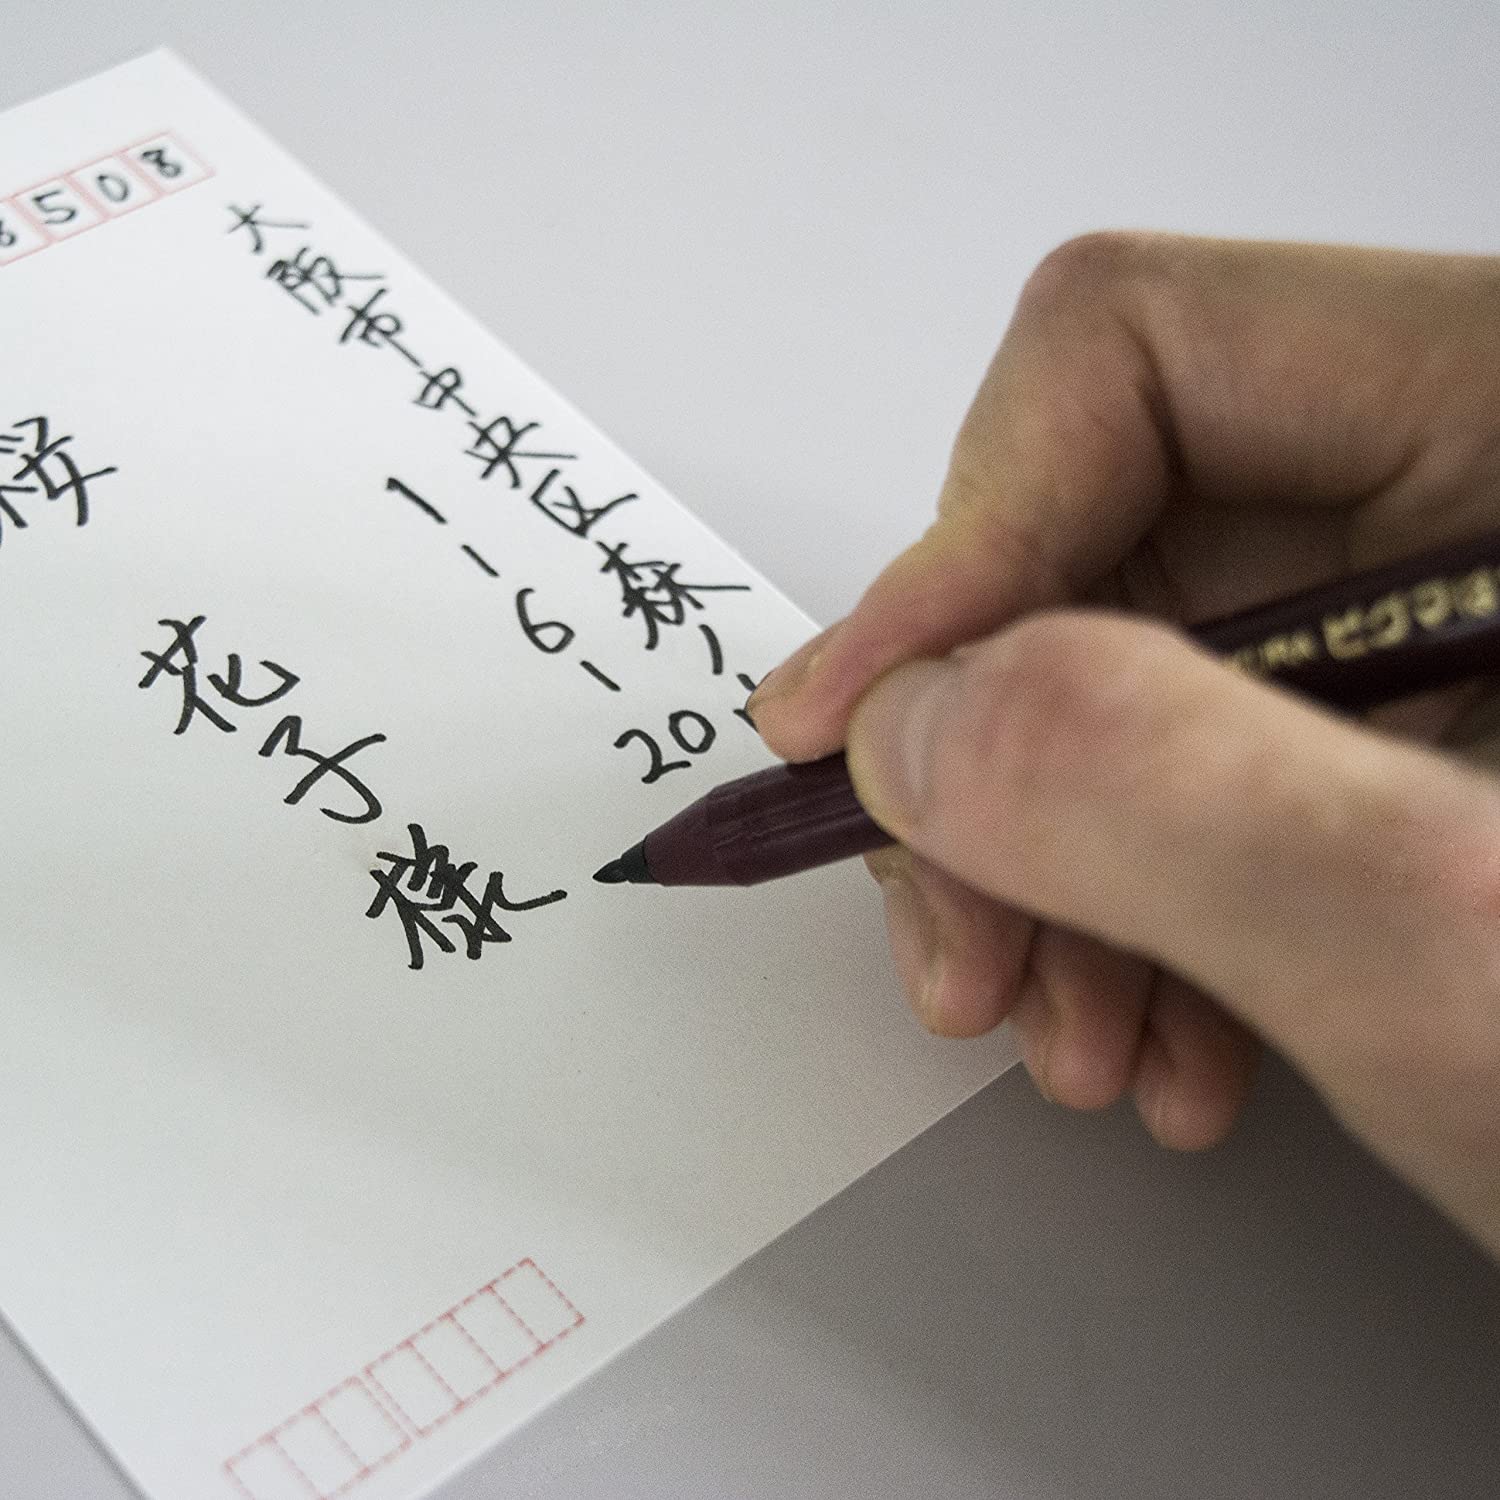 8508
大阪市中央区森ノ
1-6-20
桜花子様